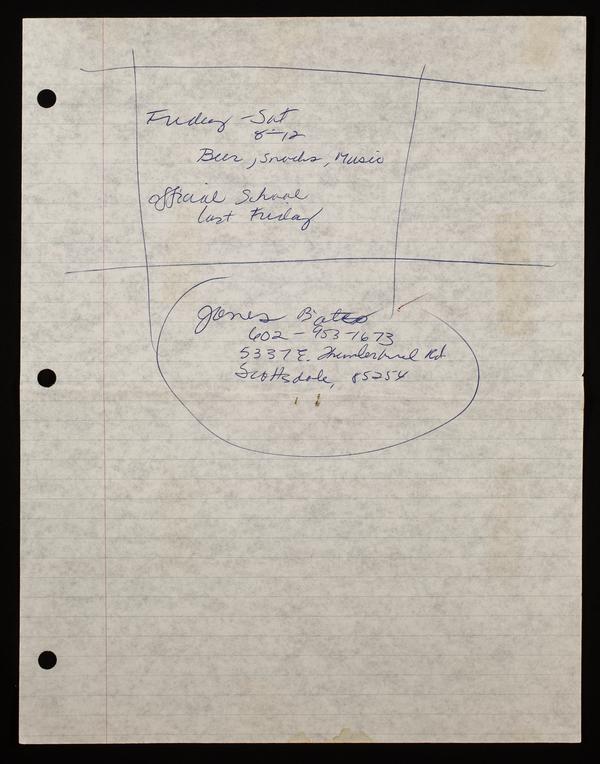 Friday - Sat
8-12
Beer, snacks, Music
official School
last Friday
James Bates
602-953-1673
5337 E. Thunderbird Rd
Scottsdale, 85254